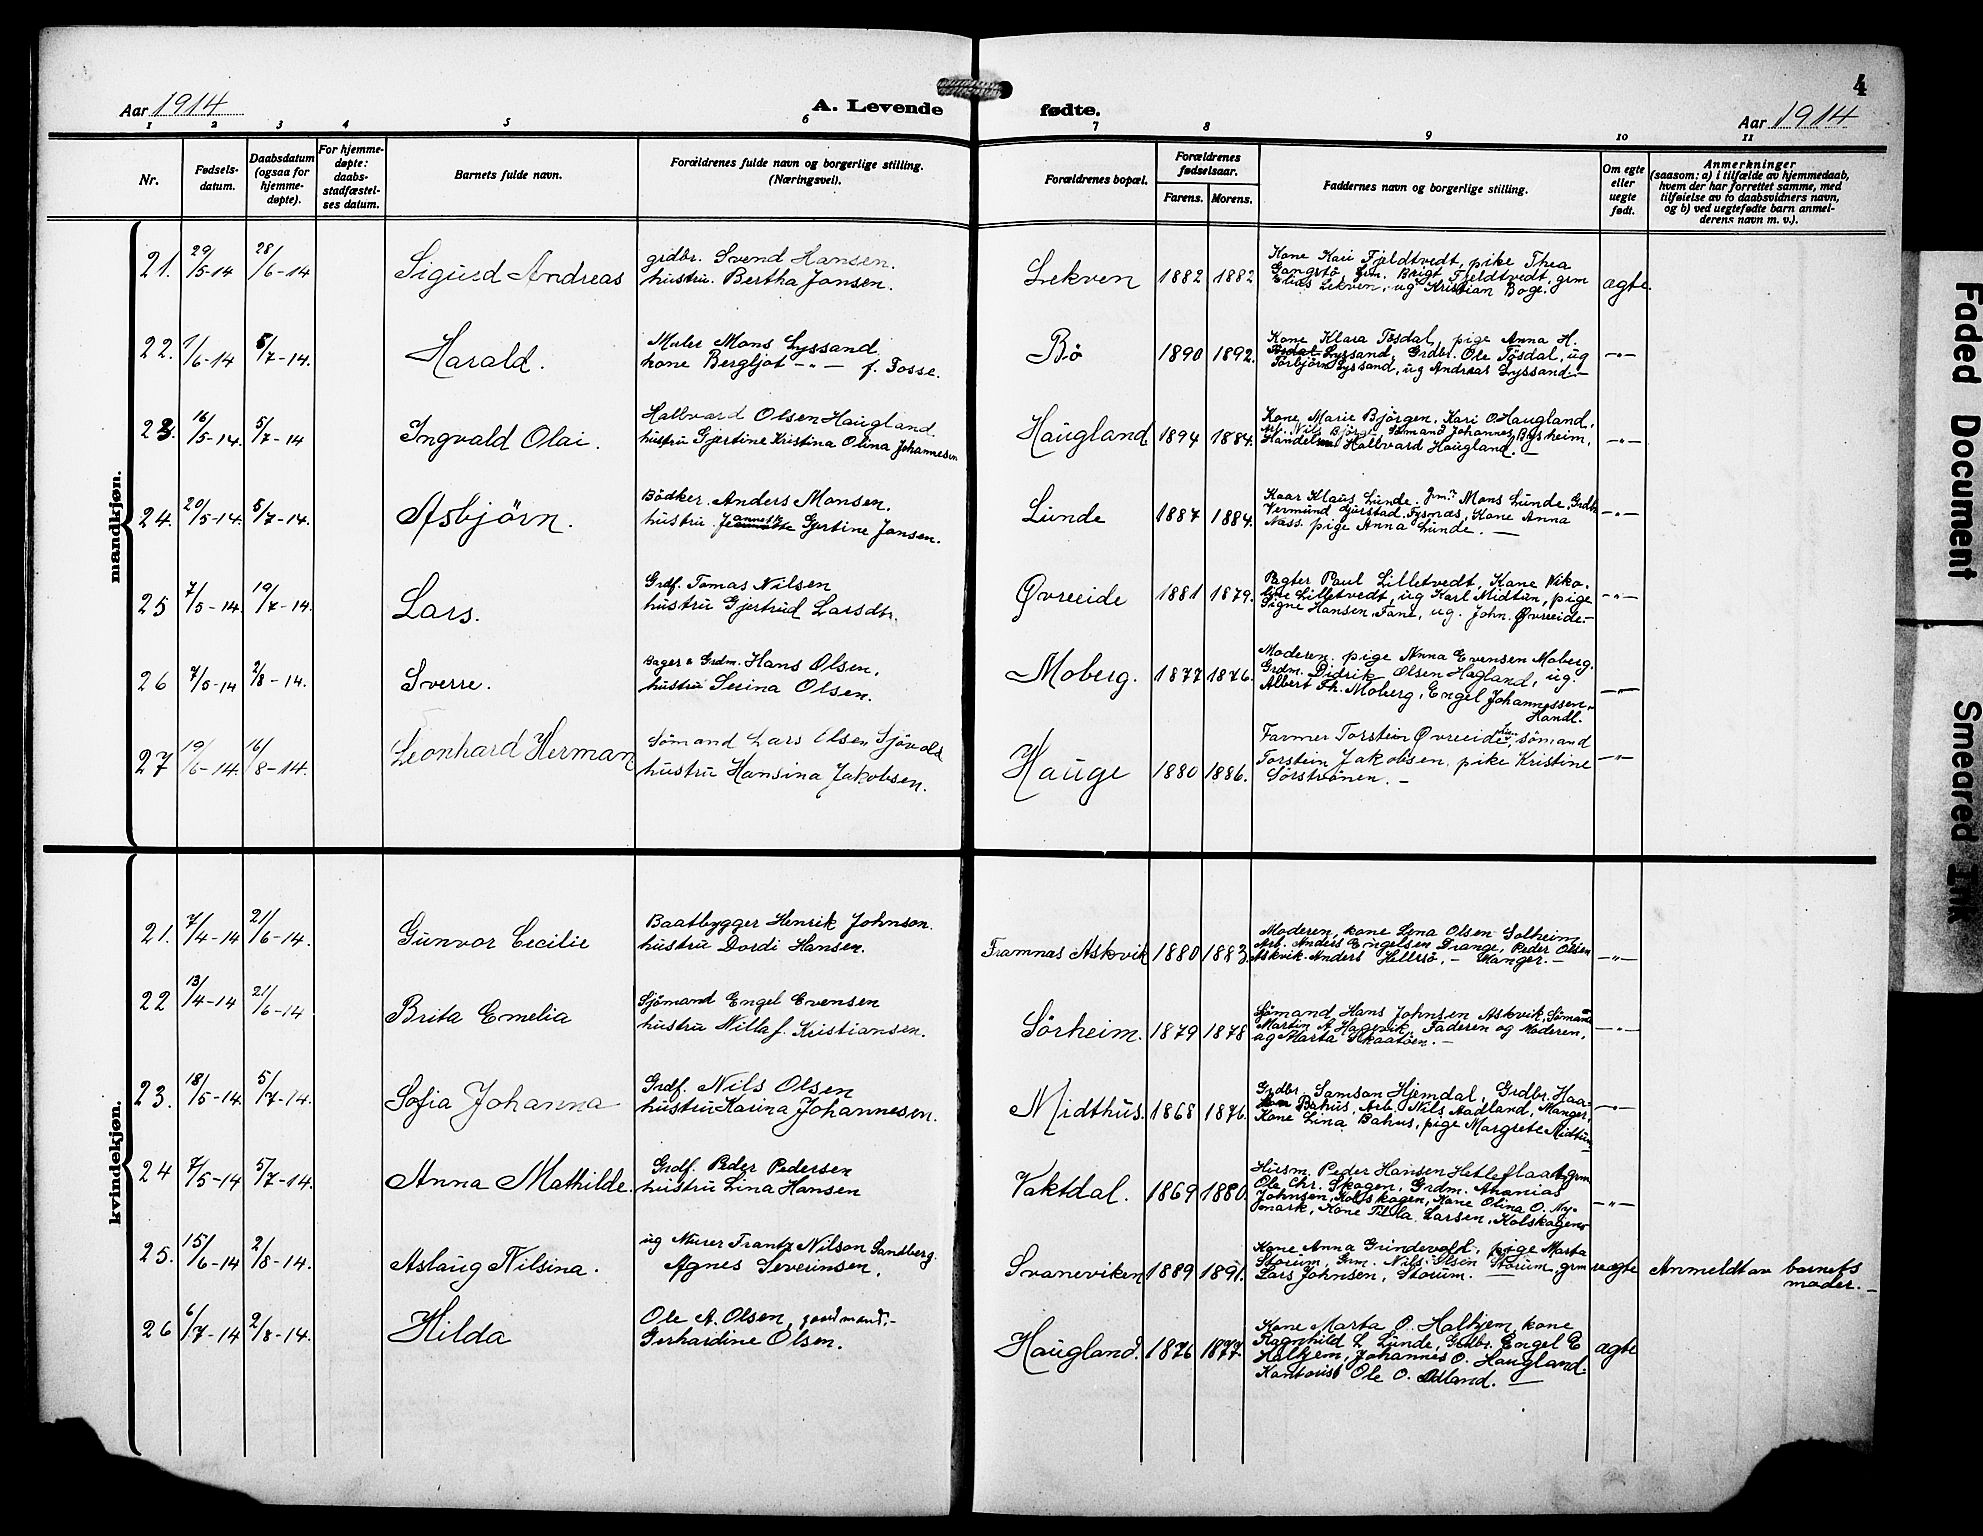 4
Aar 1914
A. Levende
fødte.
Aar 1914
1 2 3 4 5 6 7 8 9 10 11
Nr.
Fødsels-
datum.
Daabsdatum
(ogsaa for
hjemme-
døpte).
For hjemme-
døpte:
daabs-
stadfæstel-
ses datum.
Barnets fulde navn.
Forældrenes fulde navn og borgerlige stilling.
(Næringsvei).
Forældrenes bopæl.
Forældrenes
fødselsaar.
Farens. Morens.
Faddernes navn og borgerlige stilling.
Om egte
eller
uegte
født.
Anmerkninger
(saasom: a) i tilfælde av hjemmedaab,
hvem der har forrettet samme, med
tilføielse av to daabsvidners navn,
og b) ved uegtefødte barn anmel-
derens navn m. v.).
mandkjøn.
21. 29/5-14 28/6-14 Sigurd Andreas
grdbr. Svend Hansen.
hustru. Bertha Jansen.
Lekven 1882 1882
Kone Kari Fjeldtvedt, pike Thea
Gangstö, Grm. Brigt Fjeldtvedt, grm
Elias Lekven, ug Kristian Boge.
ægte.
22. 1/6-14 5/7-14. Harald.
Maler Mons Lyssand
kone Bergljot -"- f. Fosse.
Bö 1890 1892.
Kone Klara Tösdal, pige Anna H.
Lyssand, Grdbr. Ole Tösdal, ug
Torbjörn Lyssand, ug Andreas Lyssand.-
-"-
23. 16/5-14. 5/7-14 Ingvald Olai.
Hallvard Olsen Haugland.
hustru Gjertine Kristina Olina Johannesen
Haugland 1894 1884.
Kone Marie Björgen. Kari O. Haugland.
Arb. Nils Björge Sömand Johannes Bysheim,
Hallvard Haugland.-
-"-
24. 20/5-14. 5/7-14. Asbjörn.
Bödker. Anders Monsen.
hustru. Gjertine Jansen.
Lunde 1887 1884.
Kaar Klaus Lunde. Grm. Mons Lunde, Grdb
Vermund Gjerstad, Tysnæs, Kone Anna
Næss. pige Anna Lunde. -
-"-
25 7/5-14. 19/7-14. Lars.
Grdf. Tomas Nilsen
hustru Gjertrud Larsdtr.
Øvreeide 1881 1879.
Pagter Paul Lilletvedt, Kone Niko-
line Lilletvedt, ug Karl Midtun, pige
Signe Hansen, Fane, ug. John. Øvreeide.-
-"-
26 7/5-14 2/8-14. Sverre.
Bager & Grdm. Hans Olsen.
hustru Serina Olsen.
Moberg. 1877 1876.
Moderen. pige Anna Evensen Moberg.
Grdm. Didrik Olsen Hagland, ug.
Albert Th. Moberg, Engel Johannessen,
Handl.
-"-
27 19/6-14. 16/8-14. Leonhard Herman
Sömand Lars Olsen Sjövold
hustru Hansina Jakobsen.
Hauge 1880 1886.
Farmer Torstein Øvreeide, sömand
Torstein Jakobsen. pike Kristine
Sörströnen. -
-"-
kvindekjøn.
21. 7/4-14 21/6-14. Gunvor Cecilie
Baatbygger Henrik Johnson.
hustru Dordi Hansen.
Framnas Askvik 1880 1883.
Moderen, kone Lena Olsen Solheim,
Arb. Anders Engelsen Drange, Peder Olsen
Askvik. Anders Hellesö, - Manger.-
-"-
22 13/4-14 21/6-14 Brita Emelia
Sjömand Engel Evensen
hustru Nilla f. Kristiansen.
Sörheim. 1879 1878
Sjömand Hans Johnsen Askvik, Sömand
Martin A. Hagevik, Faderen og Moderen,
ag Marta Skaatöen.-
-"-
23. 18/5-14 5/7-14. Sofia Johanna
Grdf. Nils Olsen
hustru Karina Johannesen.
Midthus. 1868 1876.
Grdbr. Samson Hjemdal, Grdbr. Haa-
kon Bahus, Arb. Nils Aadland, Manger,
Kone Lina Bahus, pige Margrete Midtun
-"-
24 7/5-14 5/7-14. Anna Mathilde.
Grdf. Peder Pedersen
hustru Lina Hansen
Vaktdal. 1869 1880.
Husm. Peder Hansen Hetleflaat, grm
Ole Chr. Skagen, Grdm. Ananias
Johnsen, Kolskagen, Kone Olina O. Ny-
mark, Kone Tilla Larsen, Kolskagen
-"-
25. 15/6-14 2/8-14. Aslaug Nilsina.
ug Murer Frantz Nilson Sandberg.
Agnes Severinsen.
Svaneviken 1889 1891.
Kone Anna Grindevoll, pige Marta
Storum, Grm. Nils Olsen Storum, grm
Lars Johnsen, Storum. -
uægte Anmeldt av barnets
moder.-
26 6/7-14 2/8-14. Hilda
Ole A. Olsen, gaardmand,-
Gerhardine Olsen.
Haugland. 1876 1877.
Kone Marta O. Halhjem, kone
Ragnhild L. Lunde, Grdbr. Engel E
Halhjem, Johannes O. Haugland.
Kantorist Ole O. Adland. -
ægte
Faded Document
Smeared Ink